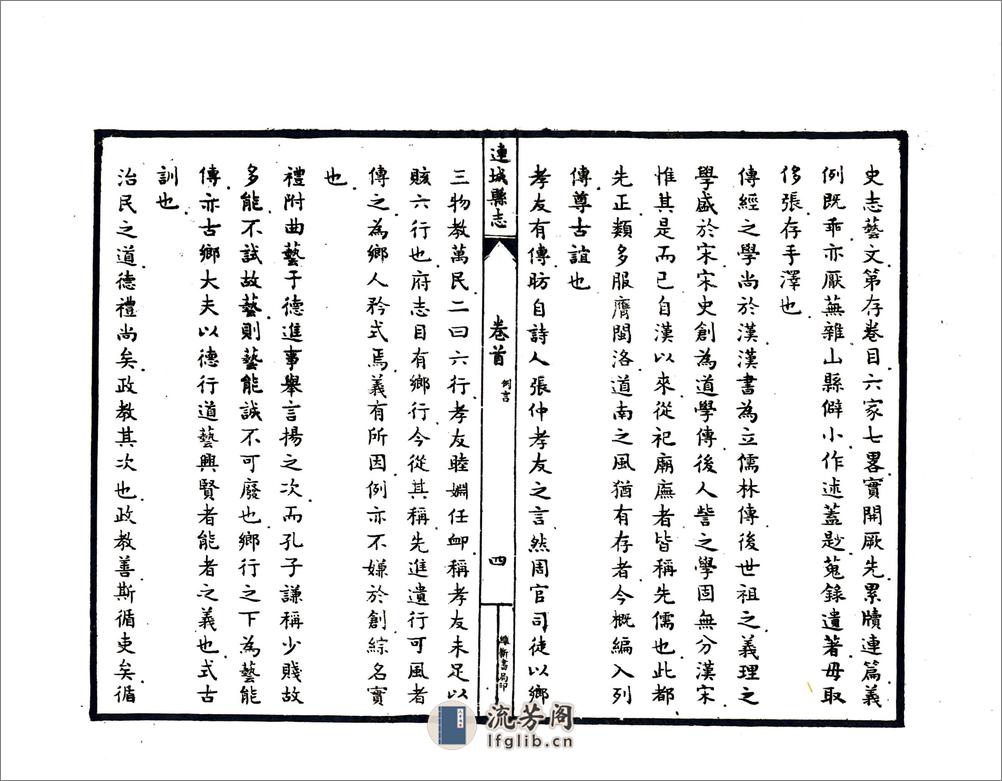 史志藝文第存卷目六家七畧實開厥先累牘連篇義
例既乖亦厭蕪雜山縣僻小作述蓋尟蒐錄遺著毋取
侈張存手澤也
傳經之學尚於漢漢書為立儒林傳後世祖之義理之
學盛於宋宋史創為道學傳後人訾之學固無分漢宋
惟其是而已自漢以來從祀廟廡者皆稱先儒也此都
先正類多服膺閩洛道南之風猶有存者今概編入列
傳尊古誼也
孝友有傳昉自詩人張仲孝友之言然周官司徒以鄉
連城縣志
卷首
例言
四
維新書局印
三物教萬民二曰六行孝友睦婣任卹稱孝友未足以
賅六行也府志目有鄉行今從其稱先進遺行可風者
傳之為鄉人矜式焉義有所因例亦不嫌於創綜名實
也
禮附曲藝于德進事舉言揚之次而孔子謙稱少賤故
多能不試故藝則藝能誠不可廢也鄉行之下為藝能
傳亦古鄉大夫以德行道藝興賢者能者之義也式古
訓也
治民之道德禮尚矣政教其次也政教善斯循吏矣循
流芳閣
lfglib.cn